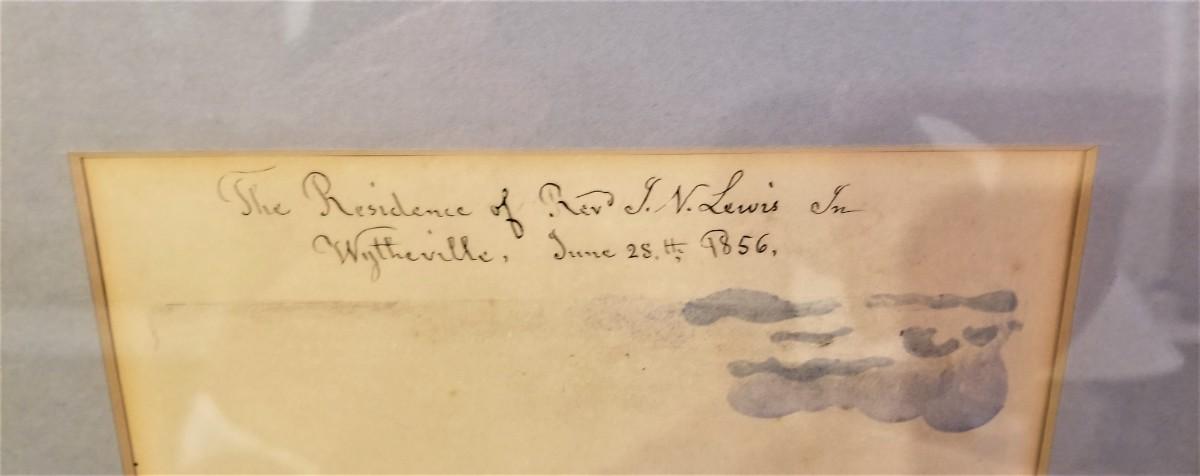 The Residence of Revd J. N. Lewis In
Wytheville, June 28.th, 1856,